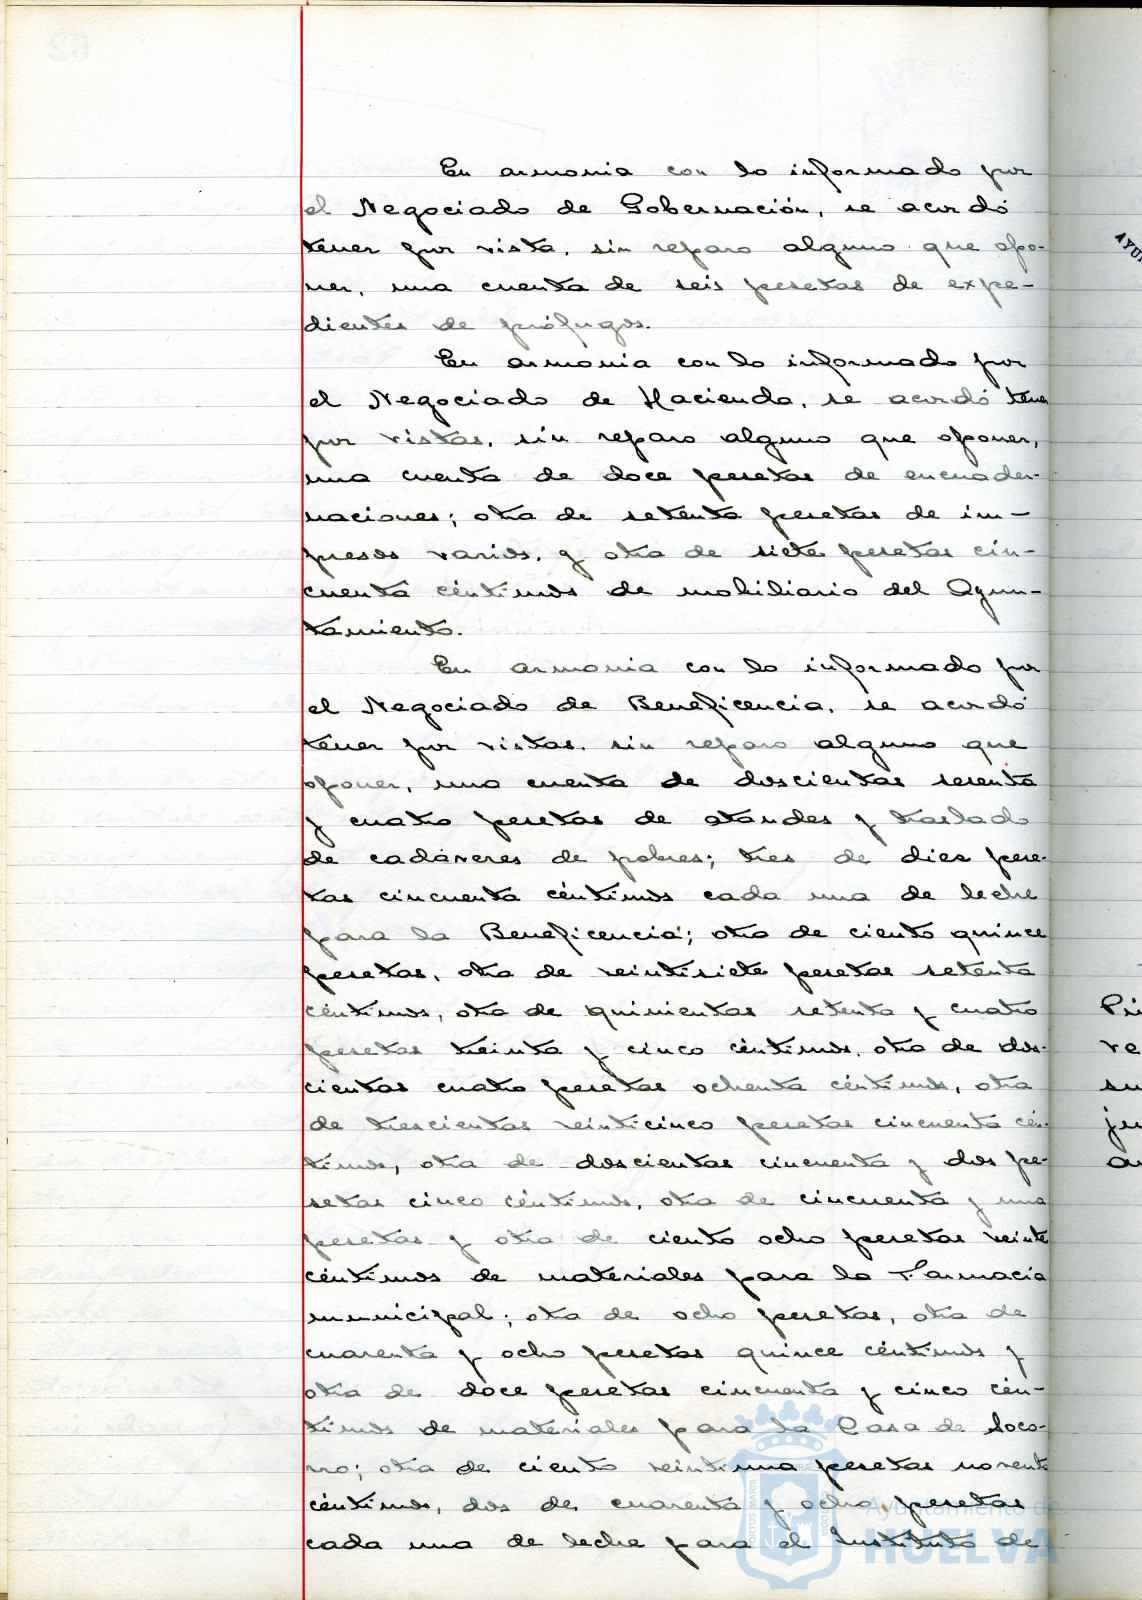 En armonia con lo informado por
el Negociado de Gobernación, se acordó
tener por vista, sin reparo alguno que opo-
ner, una cuenta de seis pesetas de expe-
dientes de prófugos.
En armonia con lo informado por
el Negociado de Hacienda, se acordó tener
por vistas, sin reparo alguno que oponer,
una cuenta de doce pesetas de encuader-
naciones; otra de setenta pesetas de im-
presos varios, y otra de siete pesetas cin-
cuenta céntimos de mobiliario del Ayun-
tamiento.
En armonia con lo informado por
el Negociado de Beneficencia, se acordó
tener por vistas, sin reparo alguno que
oponer, una cuenta de doscientas sesenta
y cuatro pesetas de ataudes y traslado
de cadáveres de pobres; tres de diez pese-
tas cincuenta céntimos cada una de leche
para la Beneficencia; otra de ciento quince
pesetas, otra de veintisiete pesetas setenta
céntimos, otra de quinientas setenta y cuatro
pesetas treinta y cinco céntimos, otra de dos-
cientas cuatro pesetas ochenta céntimos, otra
de trescientas veinticinco pesetas cincuenta cén-
timos, otra de doscientas cincuenta y dos pe-
setas cinco céntimos, otra de cincuenta y una
pesetas y otra de ciento ocho pesetas veinte
céntimos de materiales para la Farmacia
municipal; otra de ocho pesetas, otra de
cuarenta y ocho pesetas quince céntimos y
otra de doce pesetas cincuenta y cinco cén-
timos de materiales para la Casa de Soco-
rro; otra de ciento veintiuna pesetas noventa
céntimos, dos de cuarenta y ocho pesetas
cada una de leche para el Instituto de
AYU
Pri
re
su
ju
Ayuntamiento de
HUELVA
PORTUS MARIS
62